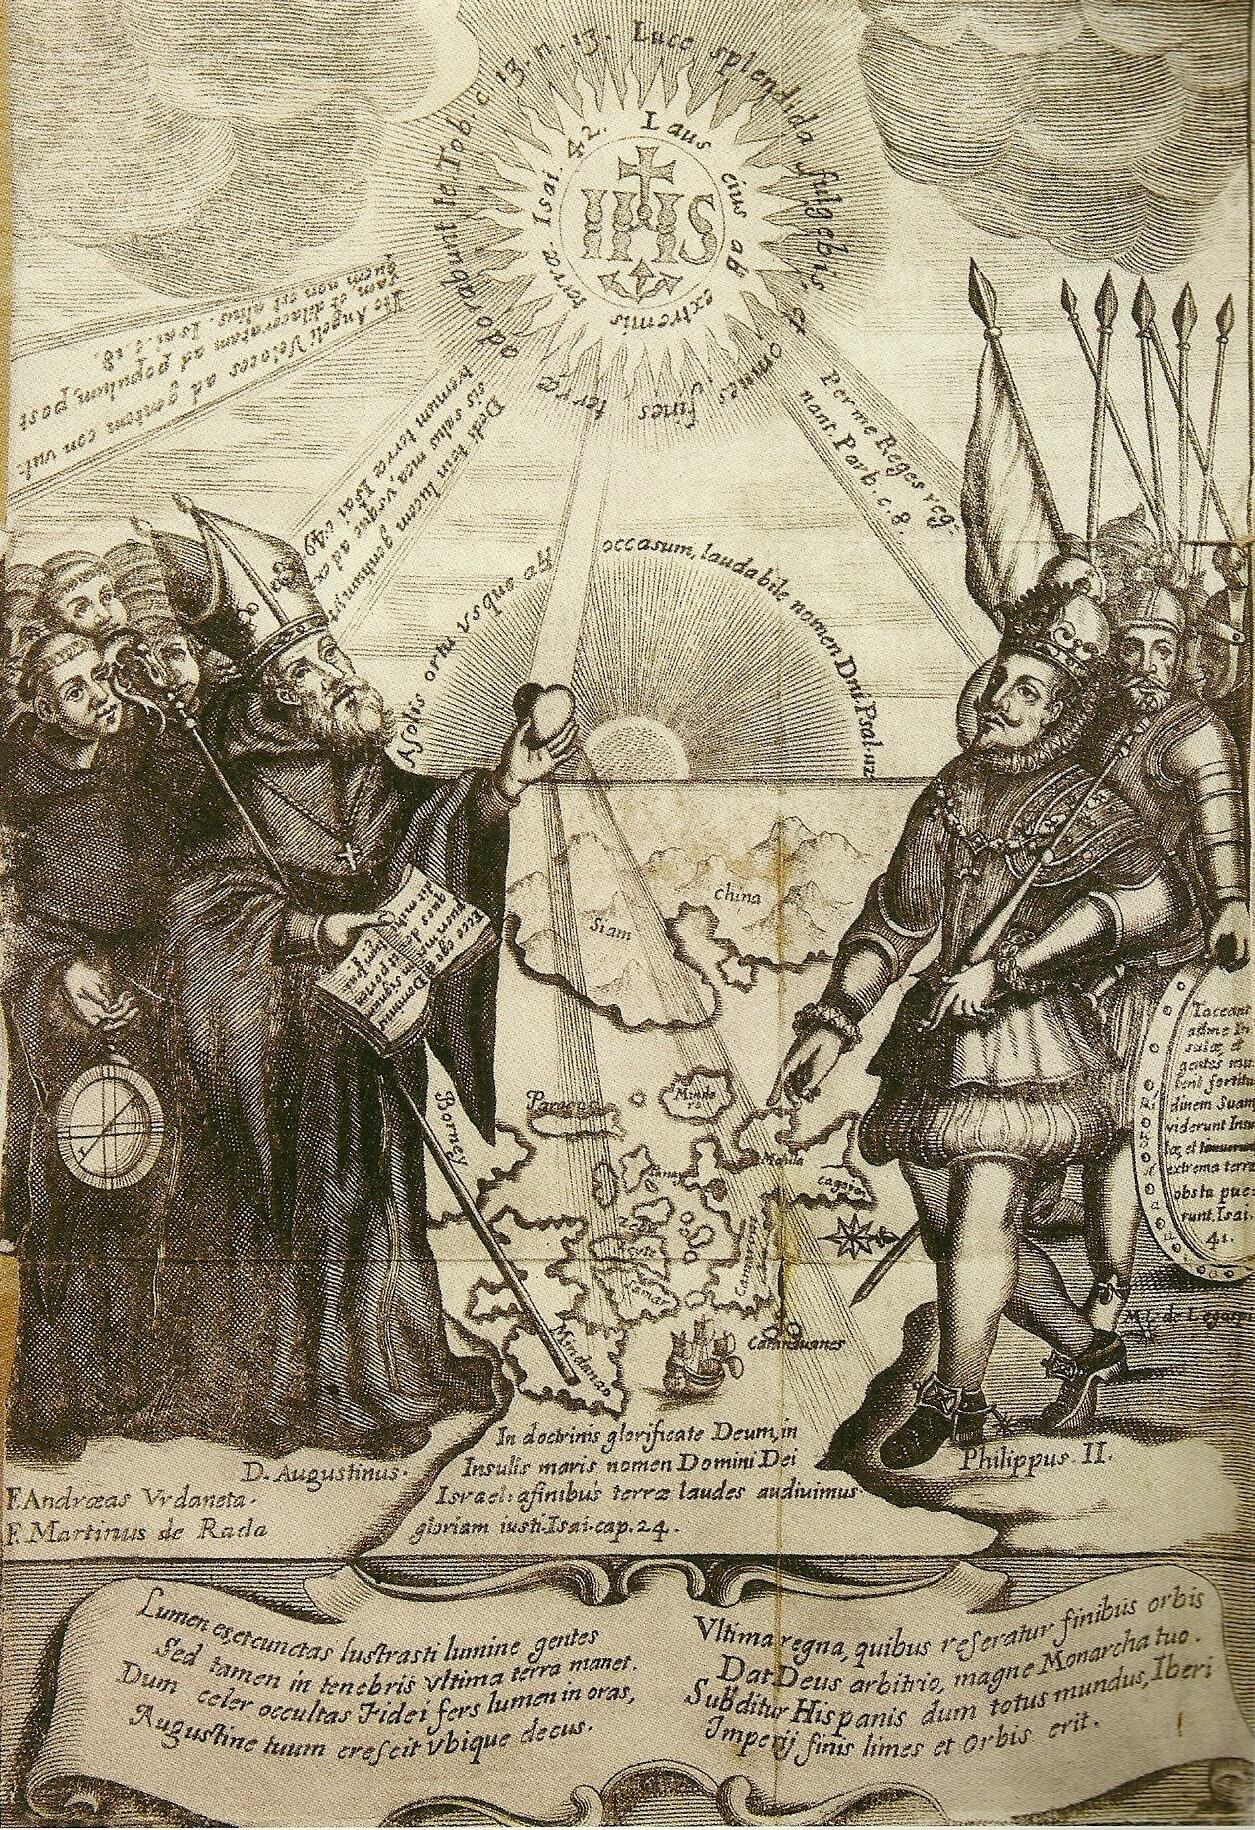 Luce splendida fulgebis, et omnes, fines terræ adorabunt te Tob. c. 13. n. 13.
Laus eius ab extremis terræ. Isai. 42.
IHS
Ite Angeli Veloces ad gentem con vul-
sam et dilaceratam ad populum, post
quem non est alius. Isai. c. 18.
Dedi te in lucem gentium, vt
sis salus mea, vsque ad ex
tremum terræ Isai c. 49
Per me Reges reg-
nant. Parb. c. 8.
A solis ortu vsque ad occasum, laudabile nomen Dni Psal. 112
china
Siam
Ecce
Borney
Mindo
ro
Manila
Cagayan
Camarines
Catanduanes
Mindanao
Taceant
ad me In
sulæ, et
gentes mu
tent fortitu
dinem Suam
viderunt Insu
læ, et timuerunt
extrema terræ
obstu pue-
runt. Isai.
41.
In doctrinis glorificate Deum, in
Insulis maris nomen Domini Dei
Israel: afinibus terræ laudes audiuimus
gloriam iusti. Isai. cap. 24.
D. Augustinus.
F. Andræas Vrdaneta.
F. Martinus de Rada
Philippus. II.
Lumen es et cunctas lustrasti lumine gentes
Sed tamen in tenebris vltima terra manet.
Dum celer occultas Fidei fers lumen in oras,
Augustine tuum crescit vbique decus.
Vltima regna, quibus reseratur finibus orbis
Dat Deus arbitrio, magne Monarcha tuo.
Subditur Hispanis dum totus mundus, Iberi
Imperij finis limes et Orbis erit.